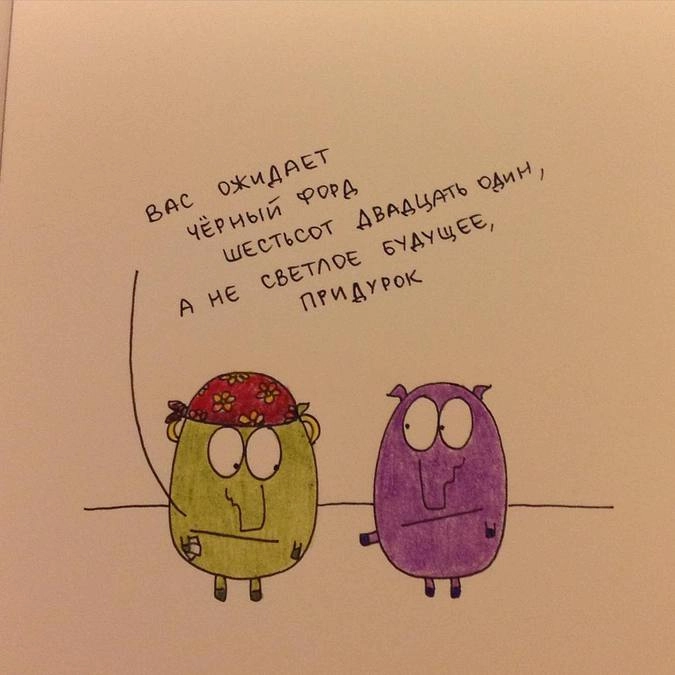 ВАС ОЖИДАЕТ
ЧЁРНЫЙ ФОРД
ШЕСТЬСОТ ДВАДЦАТЬ ОДИН,
А НЕ СВЕТЛОЕ БУДУЩЕЕ,
ПРИДУРОК